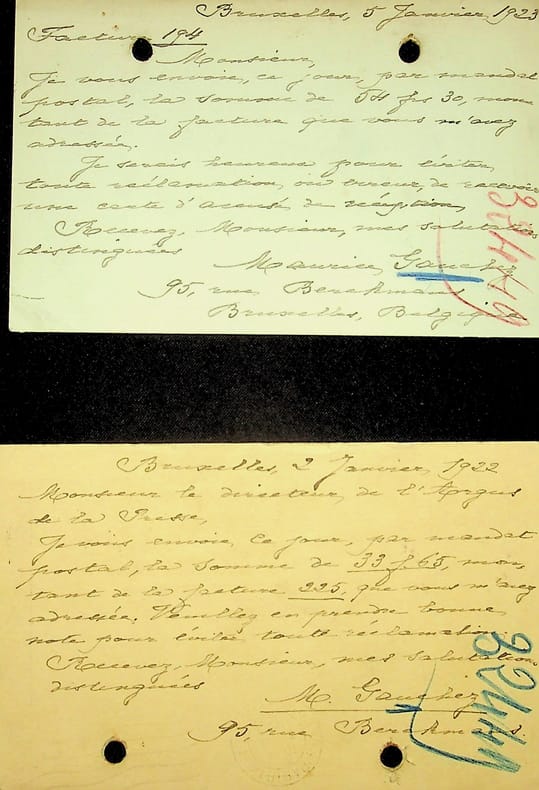 Bruxelles, 5 Janvier 1923
Facture 194
Monsieur,
Je vous envoie, ce jour, par mandat
postal, la somme de 54 frs 30, mon
tant de la facture que vous m'avez
adressée.
Je serais heureux pour éviter
toute réclamation, ou erreur, de recevoir
une carte d'accusé de réception,
Recevez, Monsieur, mes salutations
distinguées
Maurice Gauchez
95, rue Berckmans
Bruxelles, Belgique
Bruxelles, 2 Janvier 1922
Monsieur le directeur de l'Argus
de la Presse,
Je vous envoie, ce jour, par mandat
postal, la somme de 33 f 65, mon,
tant de la facture 225, que vous m'avez
adressée. Veuillez en prendre bonne
note pour éviter toute réclamation.
Recevez, Monsieur, mes salutations
distinguées
M. Gauchez
95, rue Berckmans.